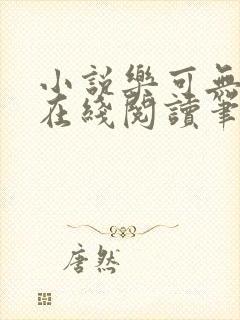 小説樂可無
在綫閱讀筆
唐然